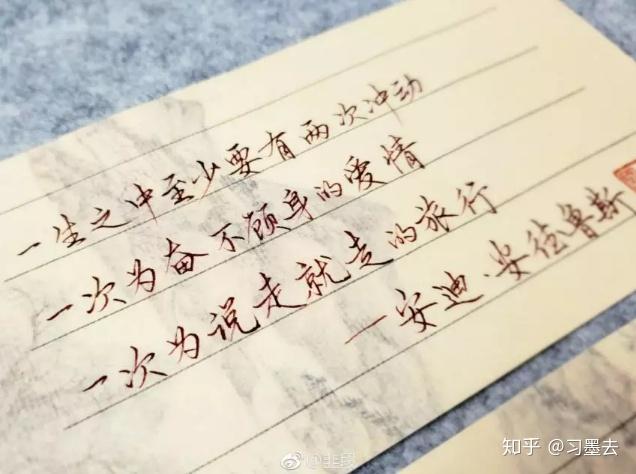 一生之中至少要有两次冲动
一次为奋不顾身的爱情
一次为说走就走的旅行
—安迪·安德鲁斯
知乎 @习墨去